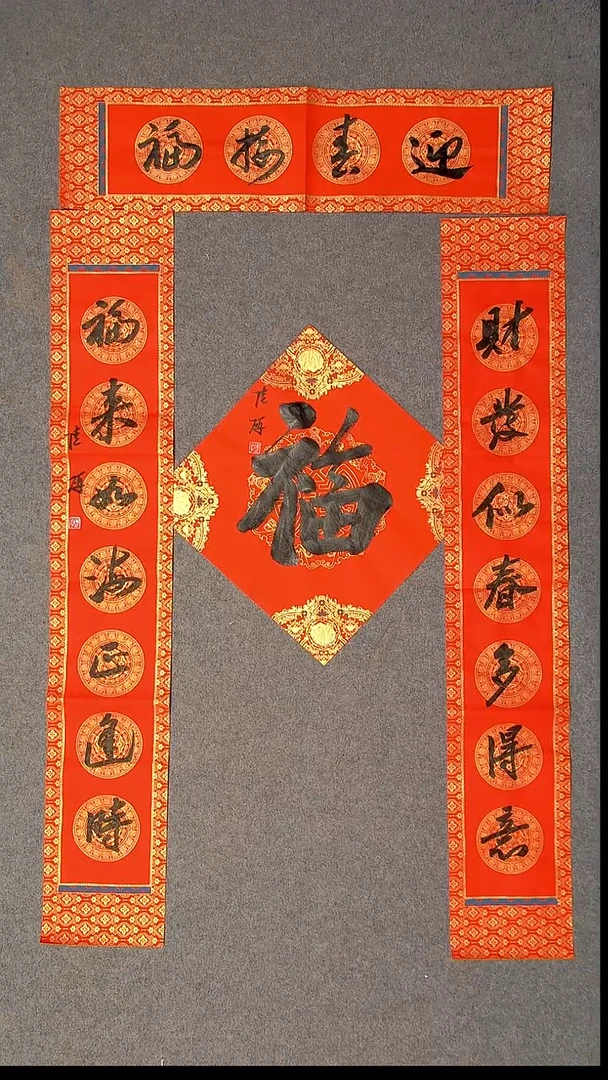 迎春接福
財發似春多得意
福来如海正逢時
福